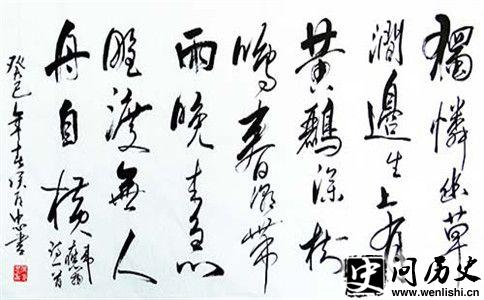 獨憐幽草
澗邊生上有
黄鸝深樹
鳴春潮帶
雨晚来急
野渡無人
舟自橫
韋應物詩一首
癸巳年春
史问历史
www.wenlishi.cn